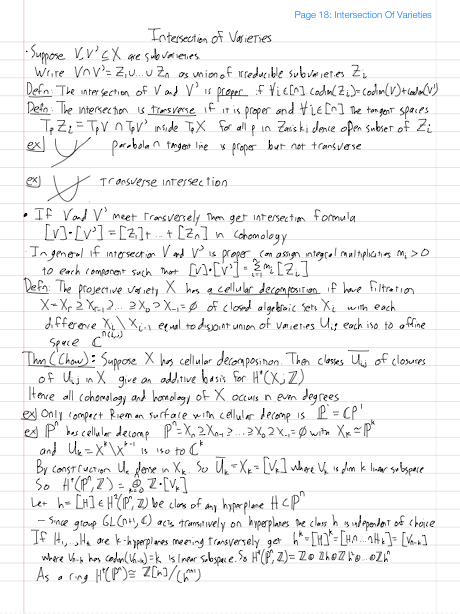 Page 18: Intersection Of Varieties
Intersection of Varieties
• Suppose V, V' ⊆ X are subvarieties
Write V∩V' = Z₁∪...∪Zₙ as union of irreducible subvarieties Zᵢ
Defn: The intersection of V and V' is proper if ∀i∈[n] codim(Zᵢ)=codim(V)+codim(V')
Defn: The intersection is transverse if it is proper and ∀i∈[n] the tangent spaces
TₚZᵢ = TₚV ∩ TₚV' inside TₚX for all p in Zariski dense open subset of Zᵢ
ex] parabola ∩ tangent line is proper but not transverse
ex] Transverse intersection
• If V and V' meet transversely then get intersection formula
[V]·[V'] = [Z₁]+...+[Zₙ] in cohomology
- In general if intersection V and V' is proper can assign integral multiplicities mᵢ > 0
to each component such that [V]·[V'] = Σᵢ₌₁ⁿ mᵢ[Zᵢ]
Defn: The projective variety X has a cellular decomposition if have filtration
X = Xᵣ ⊇ Xᵣ₋₁ ⊇ ... ⊇ X₀ ⊃ X₋₁ = ∅ of closed algebraic sets Xᵢ with each
difference Xᵢ \ Xᵢ₋₁ equal to disjoint union of varieties Uᵢⱼ each iso to affine
space ℂ^{n(i,j)}
Thm (Chow): Suppose X has cellular decomposition. Then classes U̅ᵢⱼ of closures
of Uᵢⱼ in X give an additive basis for H*(X; ℤ)
Hence all cohomology and homology of X occurs in even degrees
ex] Only compact Riemann surface with cellular decomp is ℙ¹ = ℂP¹
ex] ℙⁿ has cellular decomp ℙⁿ = Xₙ ⊇ Xₙ₋₁ ⊃ ... ⊇ X₀ ⊇ X₋₁ = ∅ with Xₖ ≅ ℙᵏ
and Uₖ = Xᵏ\Xᵏ⁻¹ is iso to ℂᵏ
By construction Uₖ dense in Xₖ. So U̅ₖ = Xₖ = [Vₖ] where Vₖ is dim k linear subspace
So H*(ℙⁿ, ℤ) = ⊕ₖ₌₀ⁿ ℤ·[Vₖ]
Let h = [H] ∈ H²(ℙⁿ, ℤ) be class of any hyperplane H ⊂ ℙⁿ
- Since group GL(n+1, ℂ) acts transitively on hyperplanes the class h is independent of choice
If H₁,...,Hₖ are k-hyperplanes meeting transversely get hᵏ = [H]ᵏ = [H₁∩...∩Hₖ] = [Vₙ₋ₖ]
where Vₙ₋ₖ has codim(Vₙ₋ₖ)=k is linear subspace. So H*(ℙⁿ, ℤ) = ℤ⊕ℤh⊕ℤh²⊕...⊕ℤhⁿ
As a ring H*(ℙⁿ) ≅ ℤ[h]/(hⁿ⁺¹)